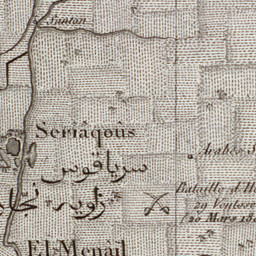 Santon
Seriâqous
سرياقوس
Arabes
Bataille d'H
29 Ventôse
(20 Mars 18
زاوية نجا
El Menâil